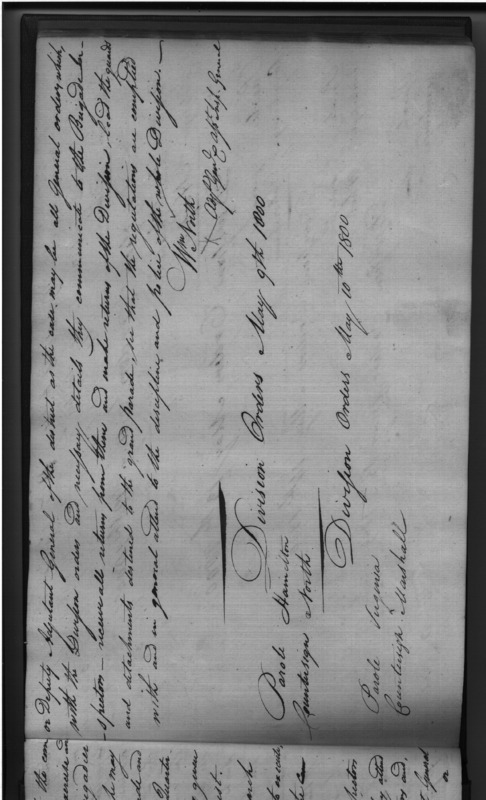 or Deputy Adjutant General of the district as the case may be all General orders which,
with the Division orders and necessary details they communicate to the Brigade In-
spectors – receive all returns from them and make returns of the Division, lead the guards
and detachments destined to the grand parade, see that the regulations are complied
with and in general attend to the discipline, and police of the whole Division. —
Wm North
Adjt Genl & Insp. General
Division Orders May 9th 1800
Parole Hamilton
Countersign North
Division Orders May 10th 1800
Parole Virginia
Countersign Marshall
the com
exercise in
to execute,